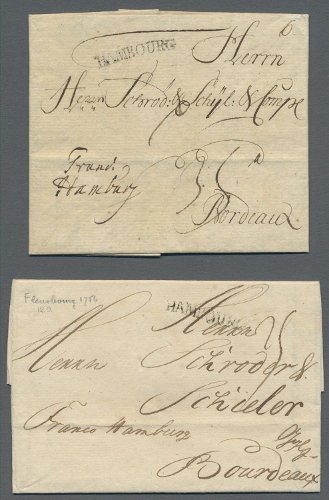 HAMBOURG
Herrn
Herrn Schröd: & Schÿl: & Compe
Franc:
Hamburg
Bordeaux
Flensbourg 1786
12.9.
HAMBOURG
Herrn
Herrn Schröder &
Schieler
Franco Hamburg
Bourdeaux